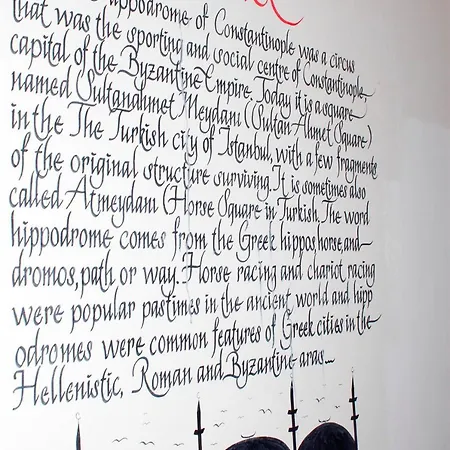 Hippodrome of Constantinople was a circus
that was the sporting and social centre of Constantinople,
capital of the Byzantine Empire. Today it is a square
named Sultanahmet Meydanı (Sultan Ahmet Square)
in the The Turkish city of Istanbul, with a few fragments
of the original structure surviving. It is sometimes also
called Atmeydanı (Horse Square in Turkish. The word
hippodrome comes from the Greek hippos horse, and
dromos, path or way. Horse racing and chariot racing
were popular pastimes in the ancient world and hipp
odromes were common features of Greek cities in the
Hellenistic, Roman and Byzantine aras...